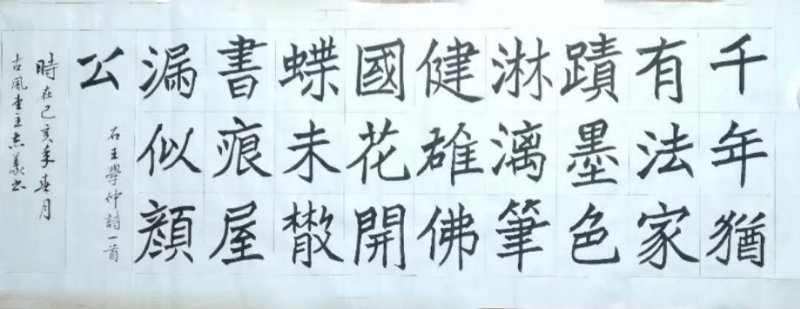 千年猶
有法家
蹟墨色
淋漓筆
健雄佛
國花開
蝶未㪚
書痕屋
漏似顔
公
右王學仲詩一首
時在己亥年春月
古風堂主志義书